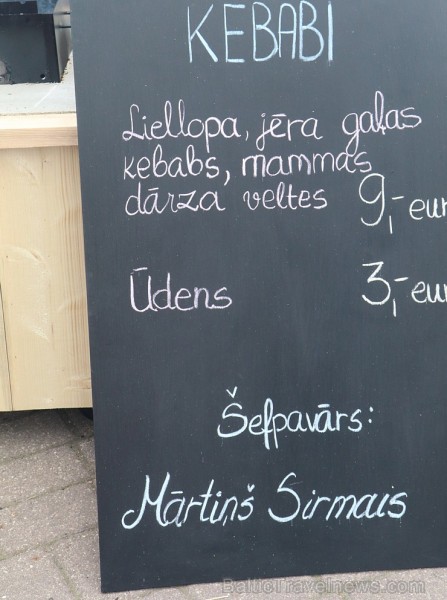 ĶEBABI
Liellopa, jēra gaļas
ķebabs, mammas
dārza veltes 9,- eur
Ūdens 3,- eur
Šefpavārs:
Mārtiņš Sirmais
BalticTravelnews.com